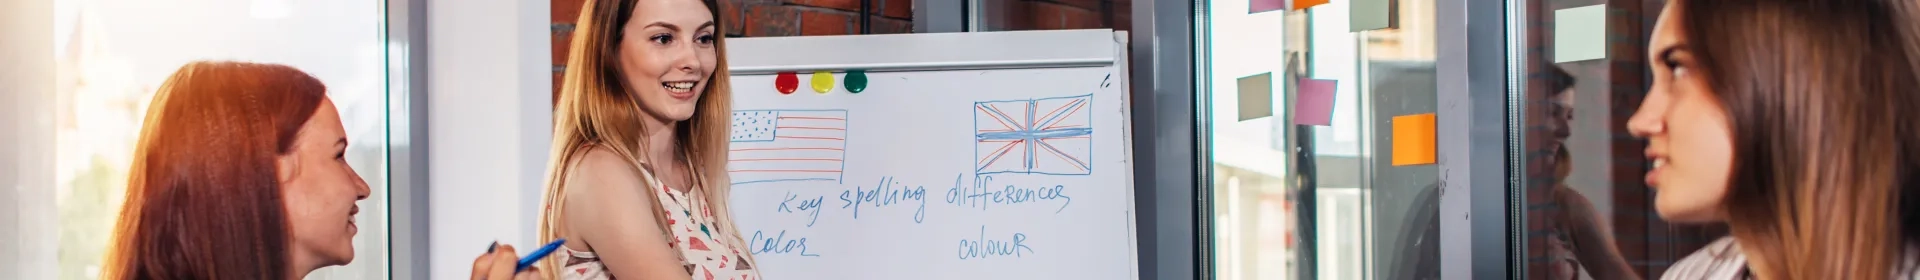 Key spelling differences
color colour